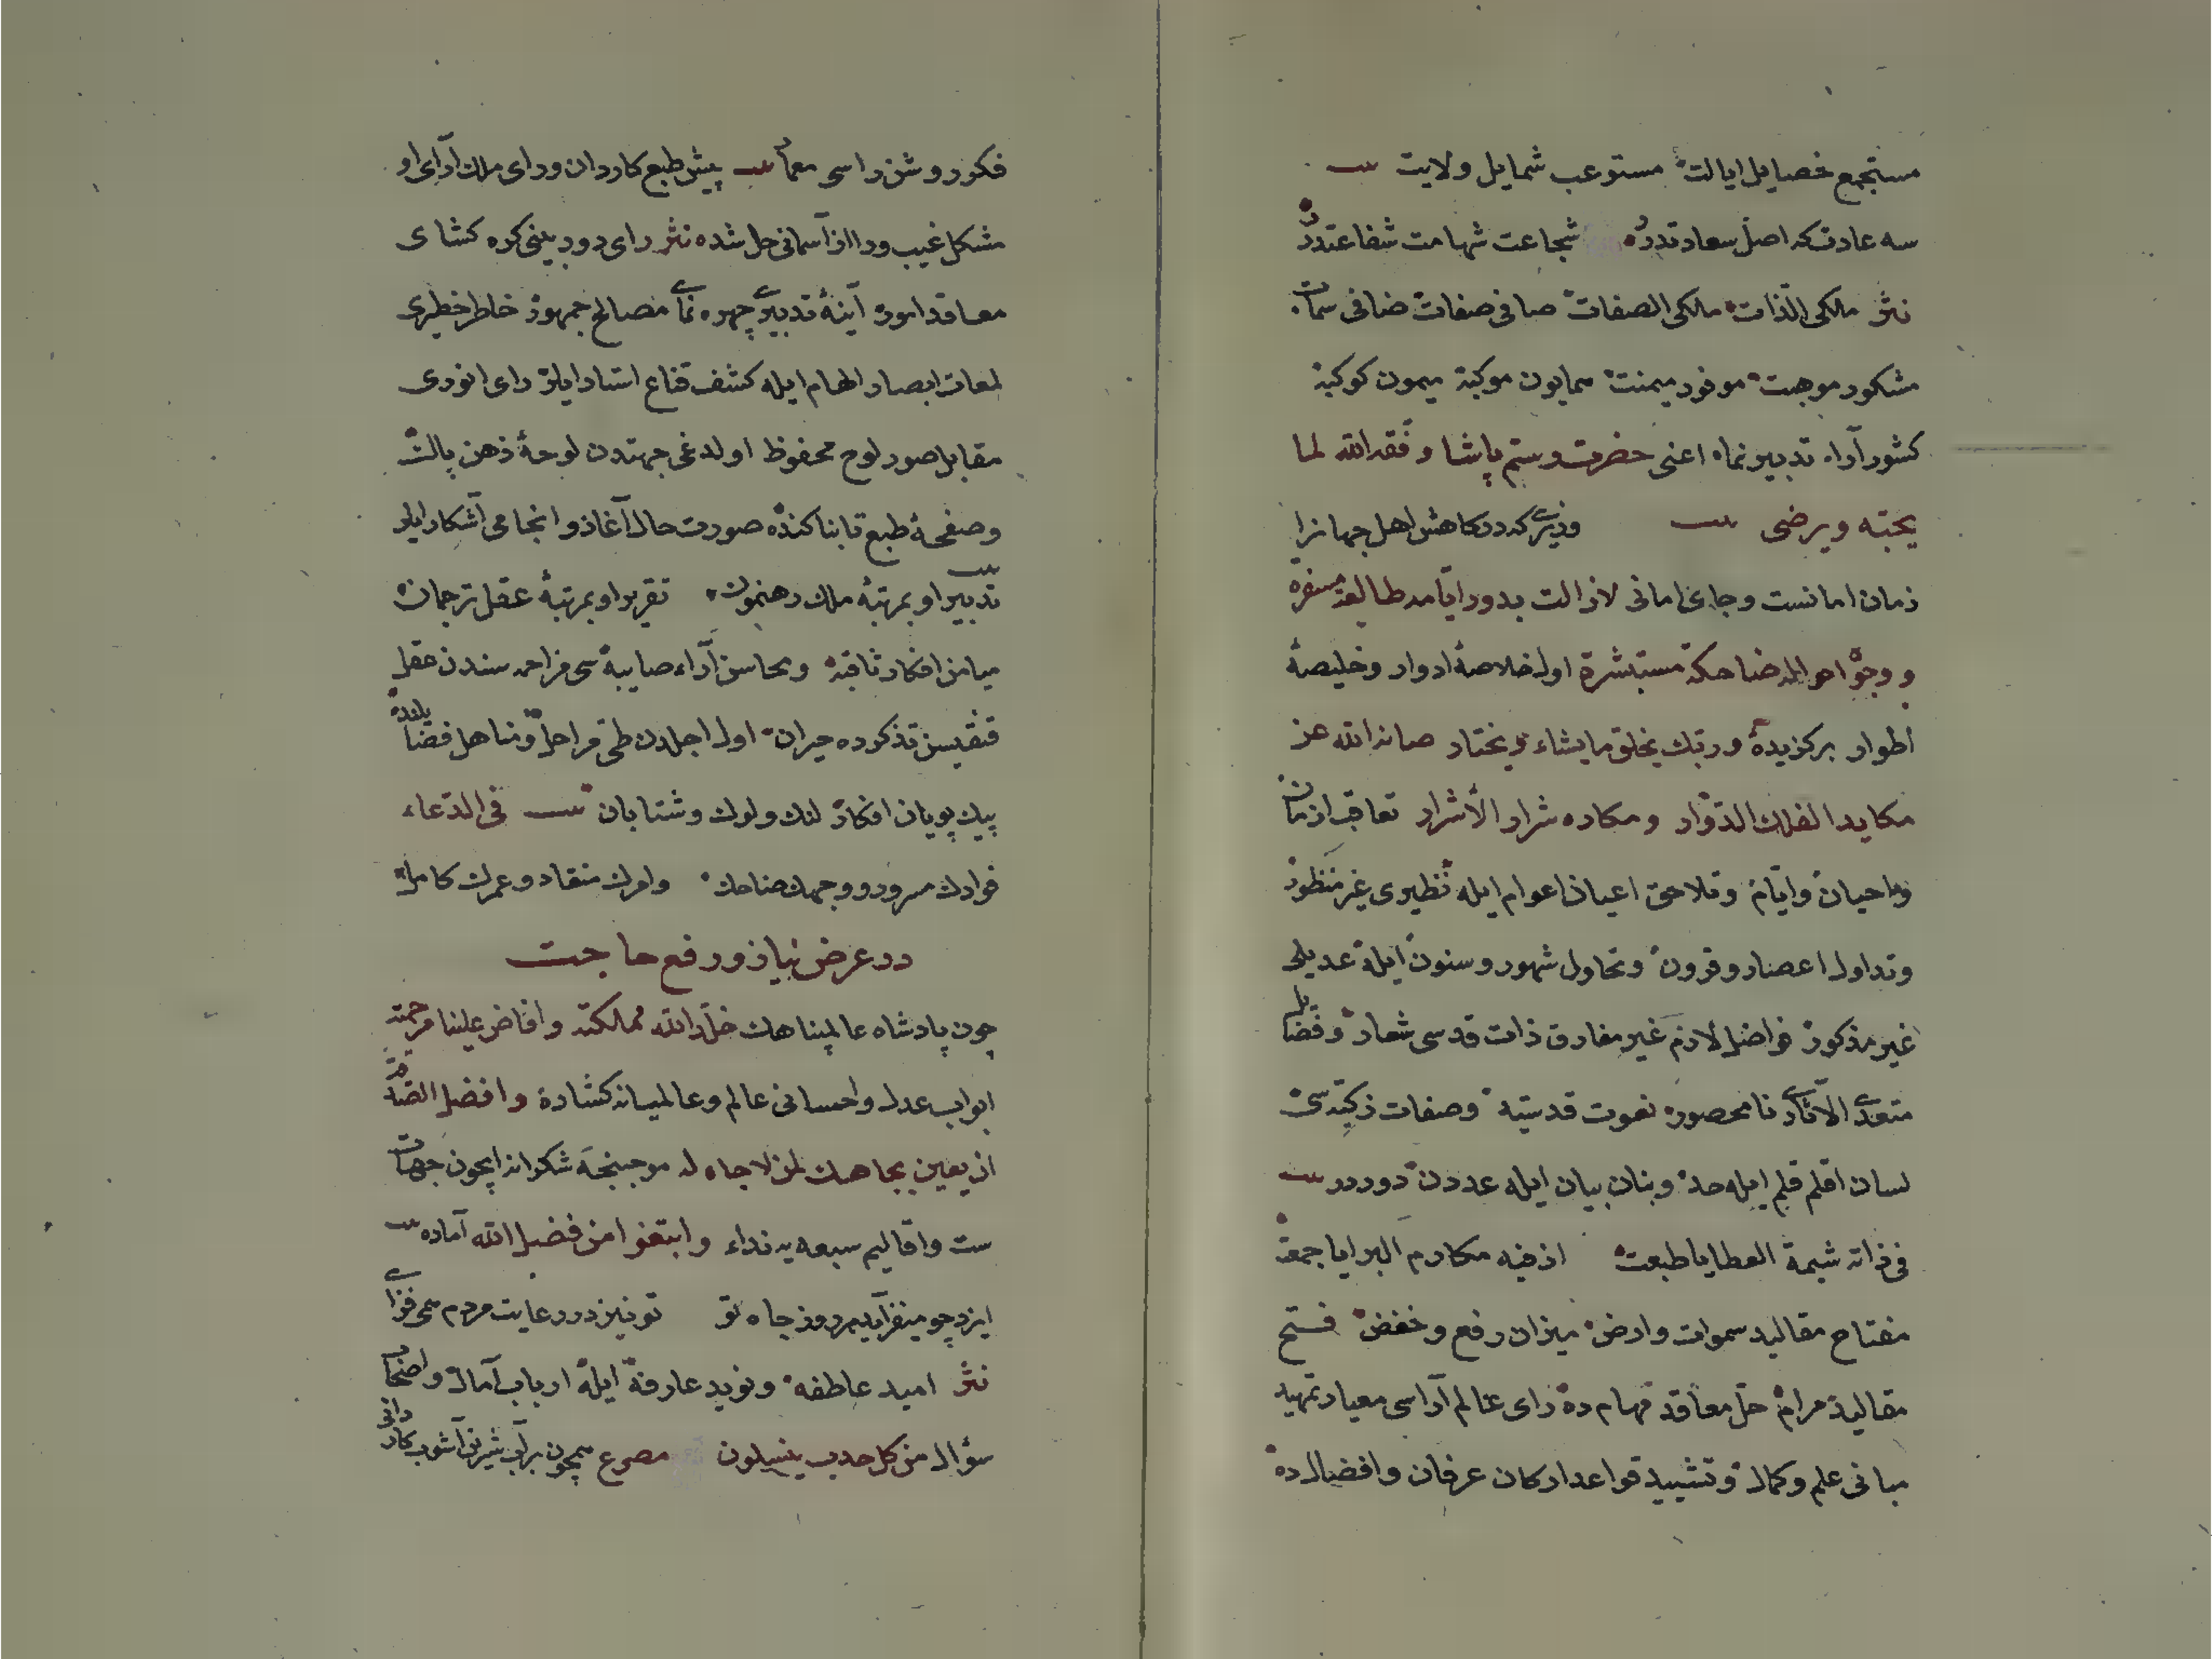 مستجمع خصایل ایالت مستوعب شمایل ولایت
سه عادت که اصل سعادتدر شجاعت شهامت شفاعتدر
نثر ملکی الذات مالکی الصفات صافی صفات ضافی سمات
مشکور موهبت موفور میمنت همایون موکبه میمون کوکبه
کشور آراء تدبیر نماه اعنی حضرت رستم پاشا وفقه الله لما
یحبّه ویرضی وزیری که درکاهش اهل جهانرا
زمان امانست وجای امانی لازالت بدور ایامه طالعة مسفرة
ووجوه احواله ضاحکة مستبشرة اول خلاصهٔ ادوار وخلیصهٔ
اطوار برکزیدهٔ وربّك یخلق مایشاء ویختار صانه الله عن
مکاید الفلك الدوّار ومکاره شرار الأشرار تعاقب ازمان
واحیان وایام وتلاحق اعیان اعوام ایله نظیری غیر منظور
وتداول اعصار وقرون وتحاول شهور وسنون ایله عدیلی
غیر مذکور فواضل لازم غیر مفارق ذات قدسی شعار وفضایل
متعدّی الآثار نامحصور نعوت قدسیّه وصفات زکیّه سی
لسان اقلم قلم ایله حد وبنان بیان ایله عددن دوردر
فی ذاته شیمة العطایا طبعت اذ فیه مکارم البرایا جمعت
مفتاح مقالید سموات وارض میزان رفع وخفض فتح
مقالید مرام حلّ معاقد مهام ده رای عالم آراسی معیار تمهید
مبانی علم وکمال وتشیید قواعد ارکان عرفان وافضال ده
فکر روشن راسی معمار پیش طبع کاردان ورای ملك آرای او
مشکل غیب وراز آسمانی حل شده نثر رای دوربینی کره کشای
معاقد امور آینهٔ تدبیری چهره نمای مصالح جمهور خاطر خطیری
لمعات ابصار الهام ایله کشف قناع استار ایلر رای انوری
مقابل صور لوح محفوظ اولدغی جهتدن لوحهٔ ذهن پاك
وصفحهٔ طبع تابناکنده صورت حال آغاز وانجامی آشکار ایلر
تدبیر او بمرتبهٔ ملك رهنمون تقریر او بمرتبهٔ عقل ترجمان
میامن افکار ثاقبه ومحاسن آراء صایبه سی مزاحمه سندن عقل
قنقیسن تذکرده حیران اول اجلدن طی مراحل ومناهل فضایلنده
پیك پویان افکار لنك ولوك وشتابان فی الدعاء
فؤادك مسرور ووجهك ضاحك وامرك منقاد وعمرك کامل
در عرض نیاز ورفع حاجت
چون پادشاه عالمپناهك خلّد الله ممالکته وافاض علینا مرحمته
ابواب عدل واحسانی عالم وعالمیانه کشاده وافضل الصدقة
ان یعین بجاهك لمن لا جاه له موجبنجه شکرانه ایچون جهات
ست واقالیم سبعه یه نداء وابتغوا من فضل الله آماده
ایزد چو میفزاید هر روز جاه تو تو نیز در رعایت مردم همی فزای
نثر امید عاطفه ونوید عارفه ایله ارباب آمال واصحاب
سؤال من کل حدب ینسلون مصرع همچون برآب شیرین آشوب کاروانی